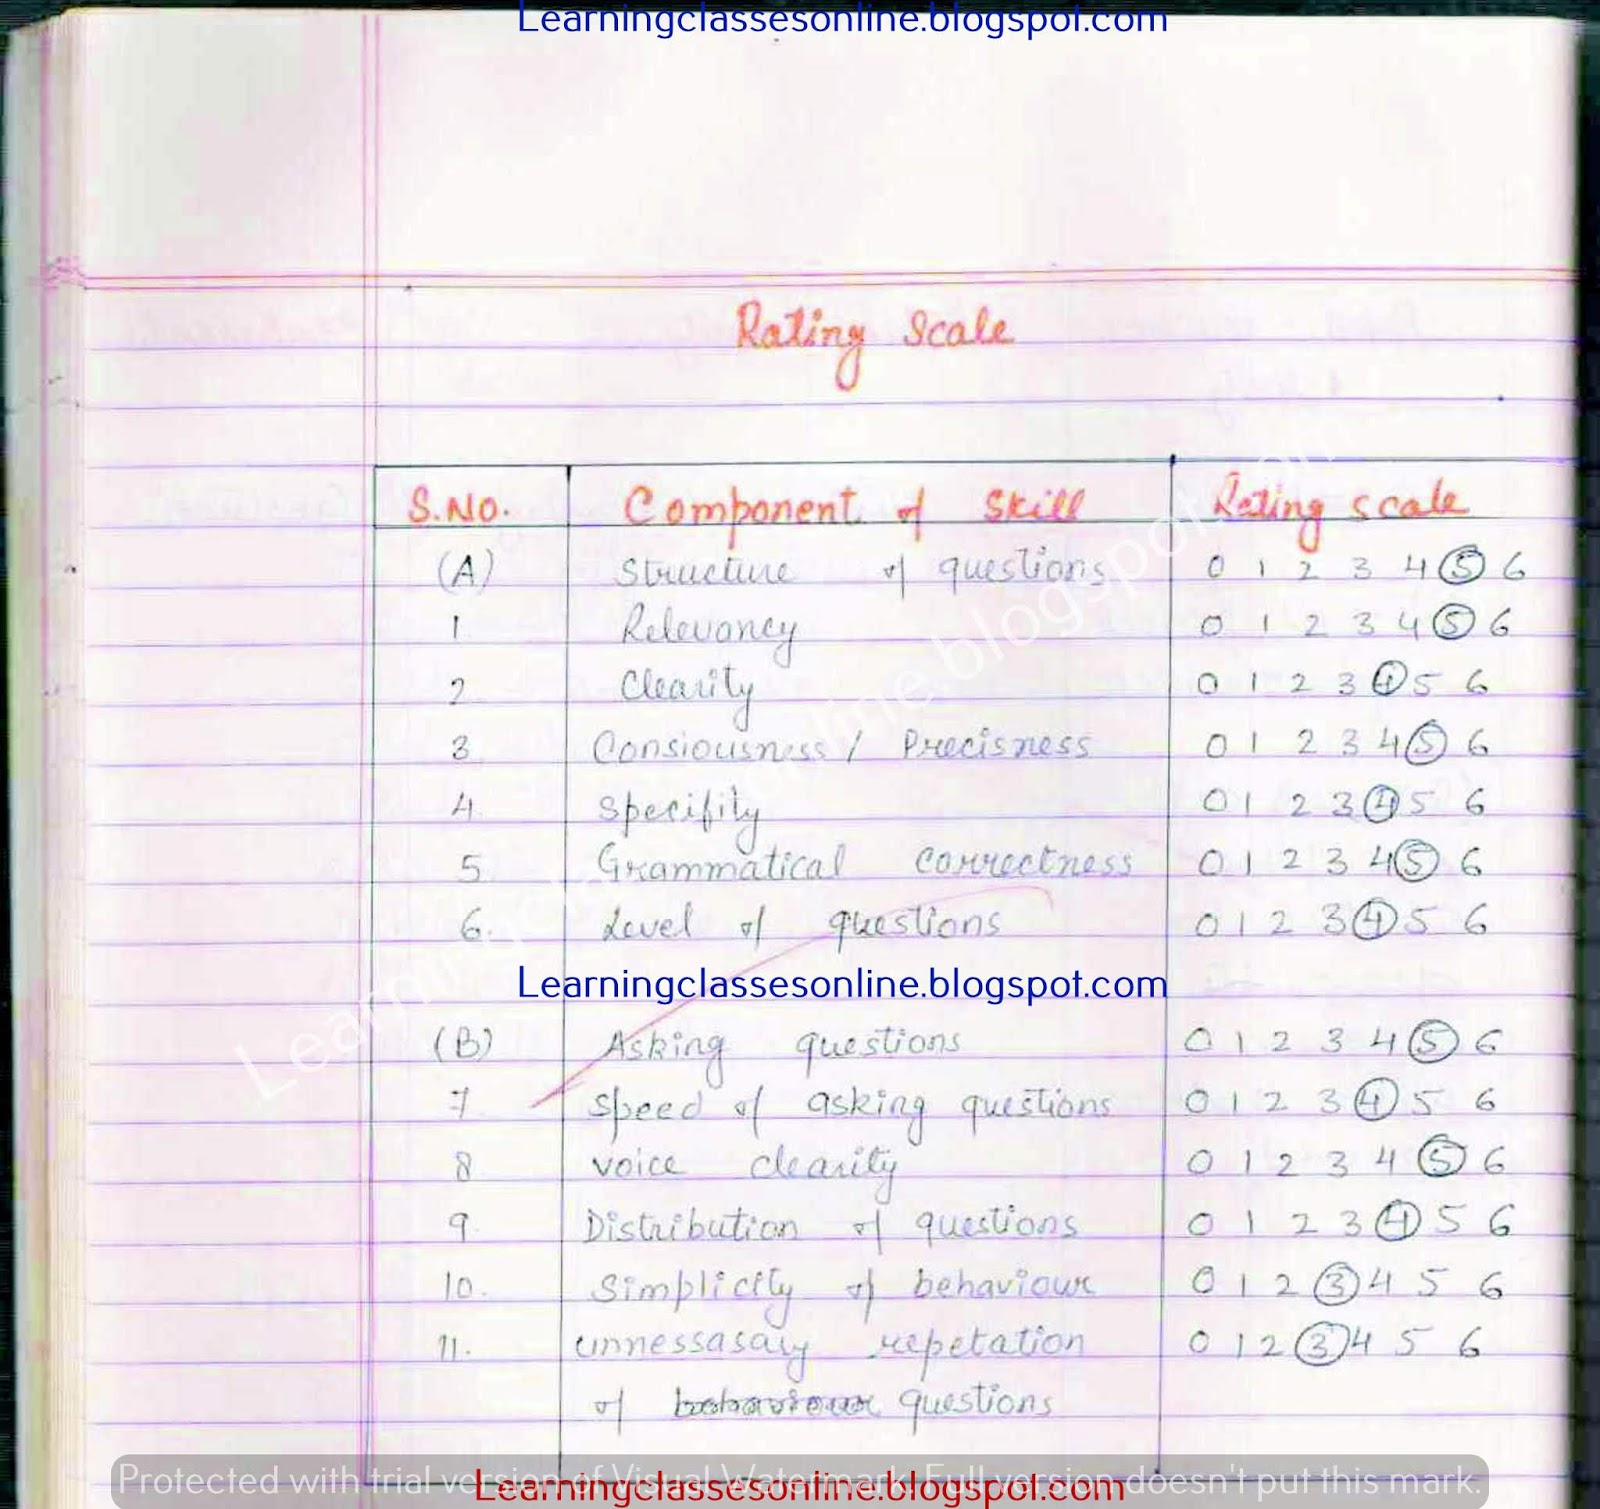 Learningclassesonline.blogspot.com
Rating Scale
S.No. Component of Skill Rating scale
(A) Structure of questions 0 1 2 3 4 5 6
1 Relevancy 0 1 2 3 4 5 6
2 Clearity 0 1 2 3 4 5 6
3 Consiousness / Precisness 0 1 2 3 4 5 6
4 Specifity 0 1 2 3 4 5 6
5 Grammatical correctness 0 1 2 3 4 5 6
6. Level of questions 0 1 2 3 4 5 6
Learningclassesonline.blogspot.com
(B) Asking questions 0 1 2 3 4 5 6
7 Speed of asking questions 0 1 2 3 4 5 6
8 voice clearity 0 1 2 3 4 5 6
9. Distribution of questions 0 1 2 3 4 5 6
10. Simplicity of behaviour 0 1 2 3 4 5 6
11. unnessasary repetation 0 1 2 3 4 5 6
of behaviour questions
Learningclassesonline.blogspot.com
Protected with trial version of Visual Watermark. Full version doesn't put this mark.
Learningclassesonline.blogspot.com